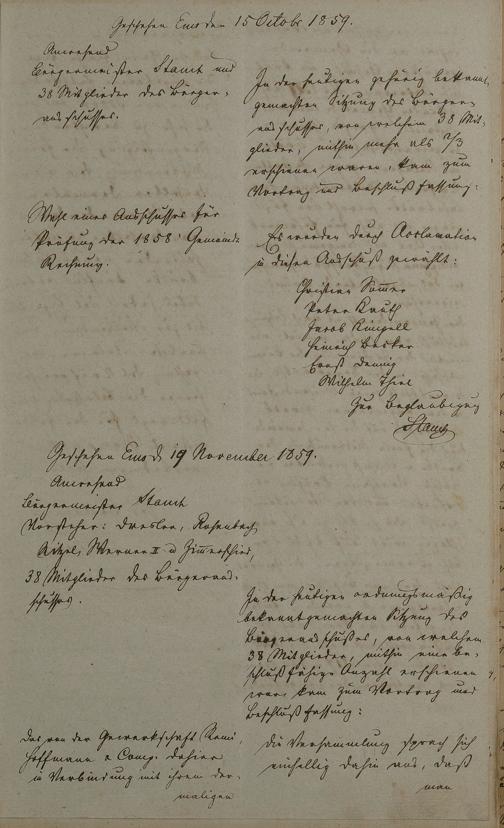 Geschehen Ems den 15 Octobr 1859.
Anwesend
Bürgermeister Stamt und
38 Mitglieder des Bürger-
ausschusses.
In der heutigen gehörig bekannt
gemachten Sitzung des Bürger-
ausschusses, von welchem 38 Mit-
glieder, mithin mehr als 2/3
erschienen waren, kam zum
Vortrag und Beschlußfassung:
Wahl eines Ausschusses für
Prüfung der 1858r Gemeinde
Rechnung.
Es wurden durch Acclamation
in diesen Ausschuß gewählt:
Christian Sommer
Peter Kauth
Jacob
Heinrich Becker
Ernst
Wilhelm Thiel
Zur Beglaubigung
Stamt
Geschehen Ems d 19 November 1859.
Anwesend
Bürgermeister Stamt
Vorsteher: Dresler, Rosenbach,
Werner II u Zimmerschied,
38 Mitglieder des Bürgeraus-
schusses.
In der heutigen ordnungsmäßig
bekanntgemachten Sitzung des
Bürgerausschußes, von welchem
38 Mitglieder, mithin eine be-
schlußfähige Anzahl erschienen
war, kam zum Vortrag und
Beschlußfassung:
Das von der Gewerkschaft Remi,
Hoffmann & Comp. dahier
in Verbindung mit ihrem der-
maligen
Die Versammlung sprach sich
einhellig dahin aus, daß
man